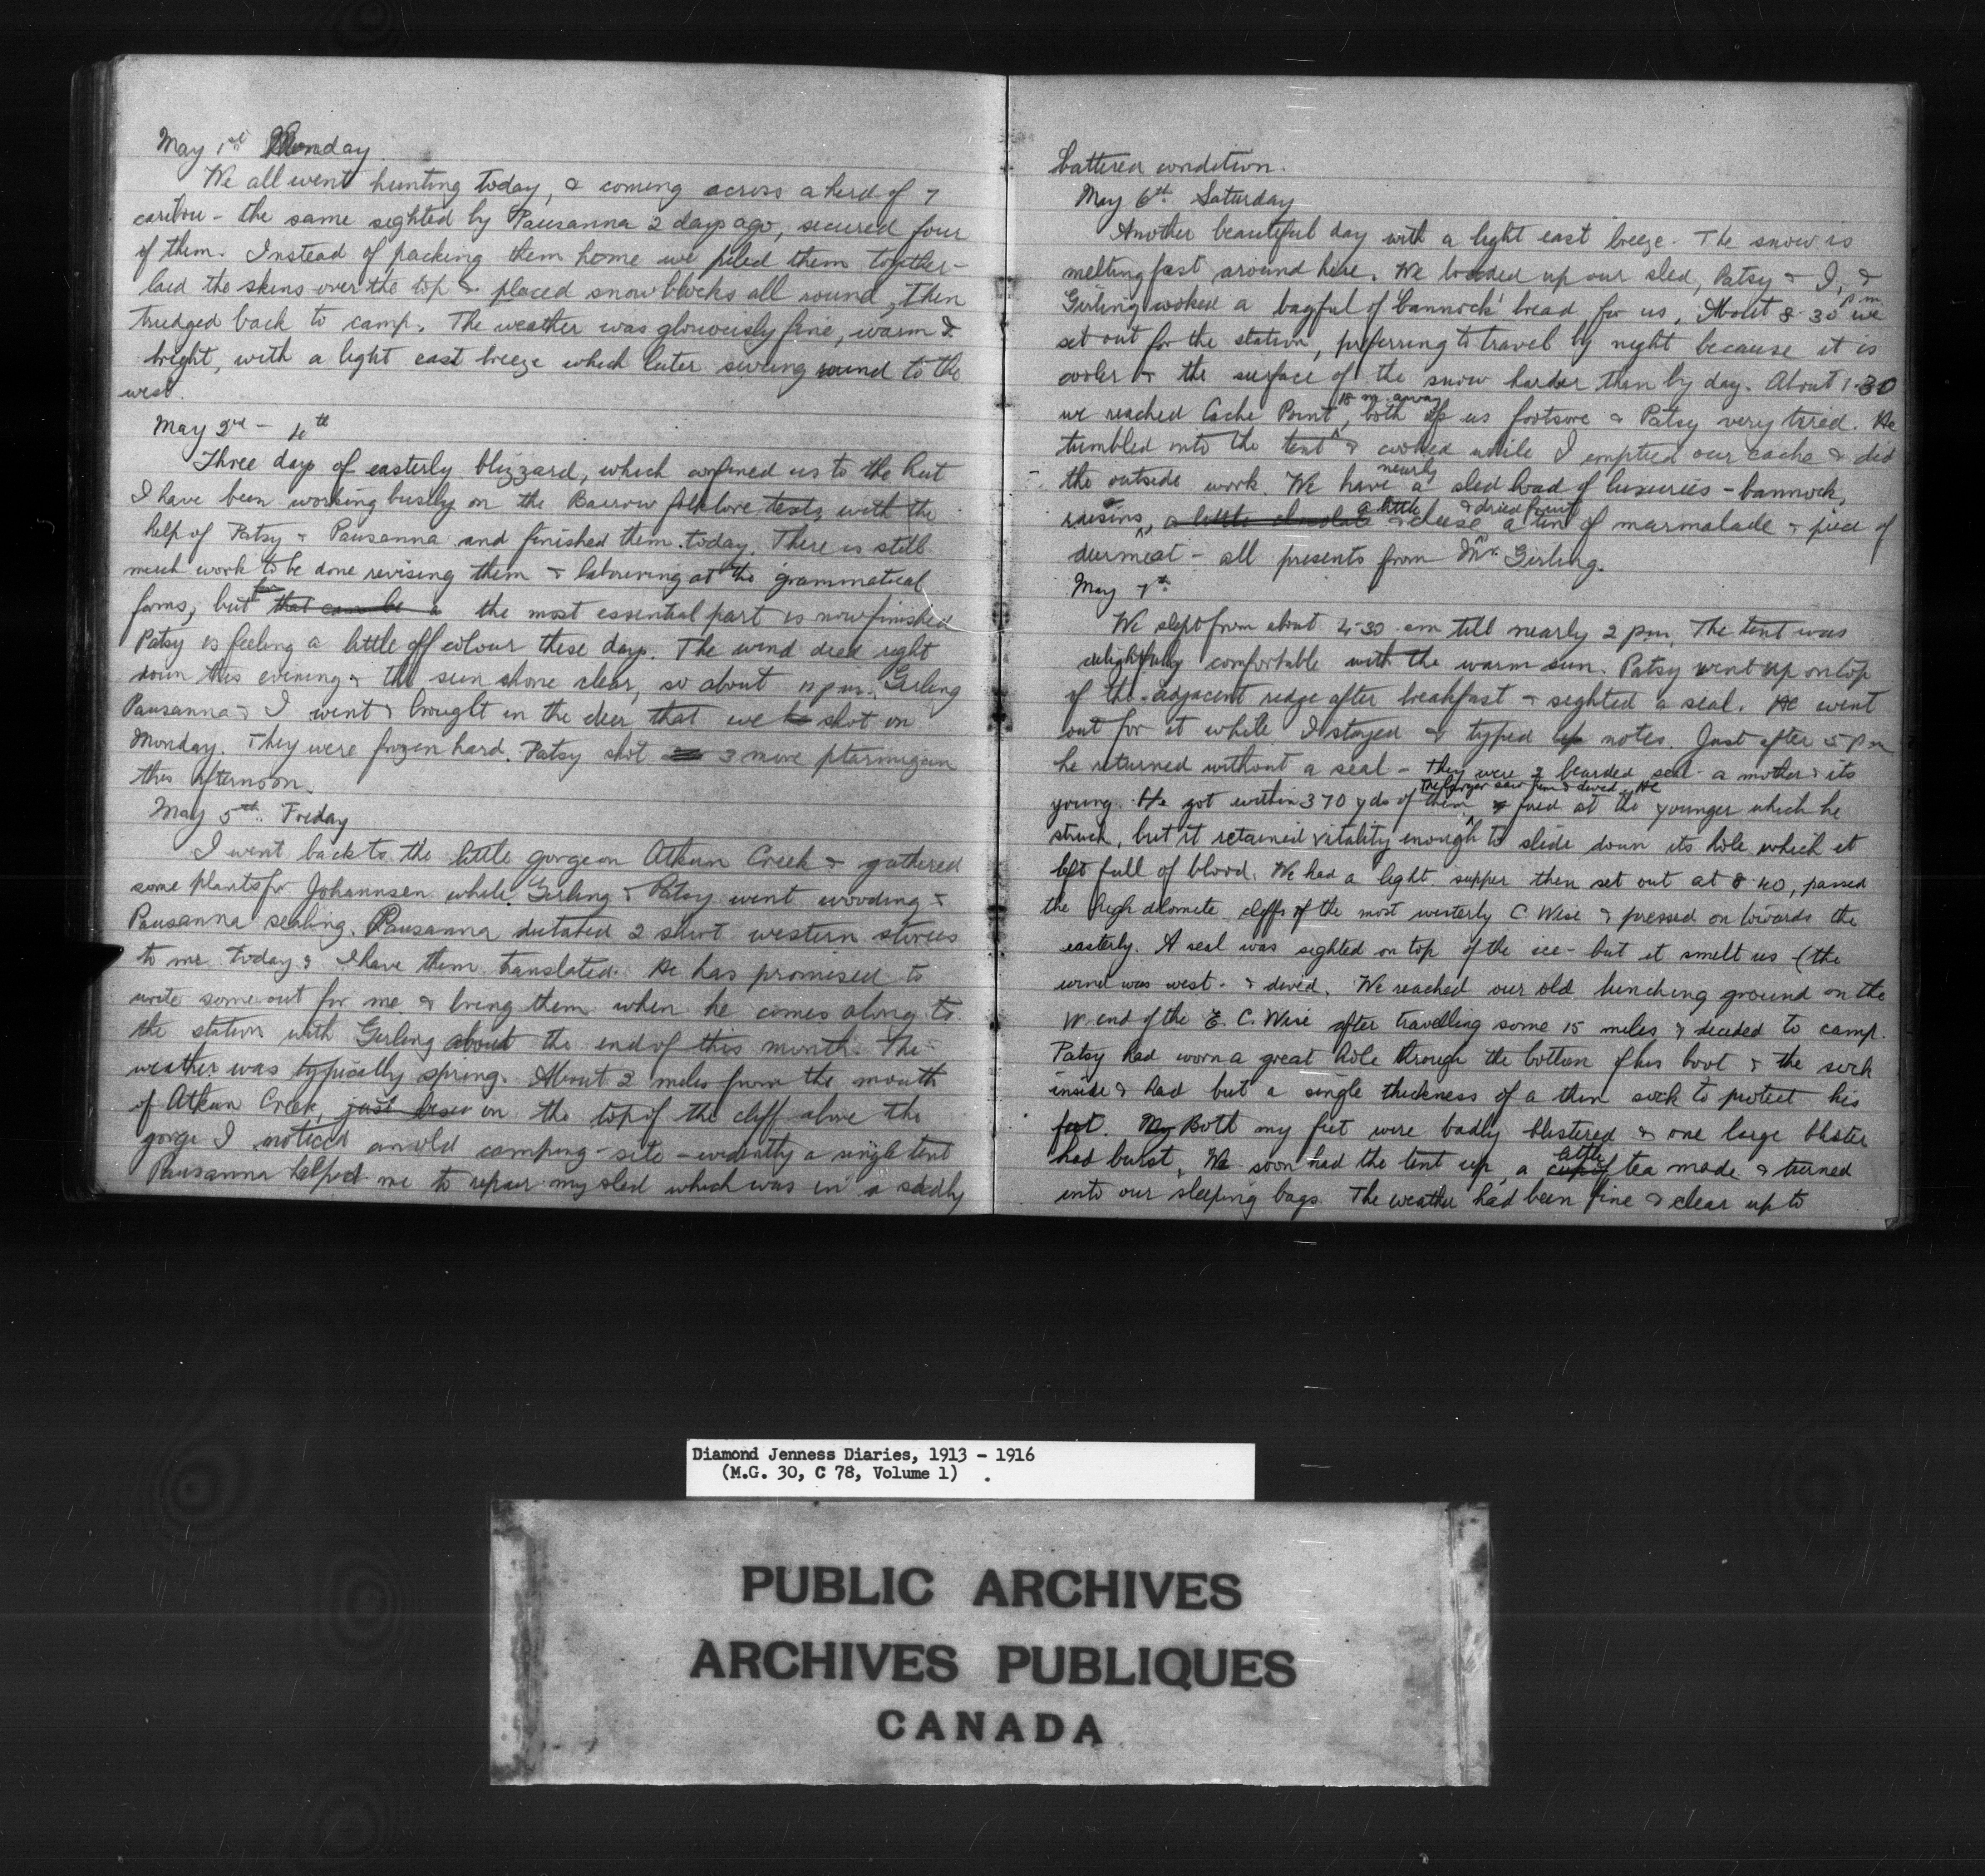 May 1st Monday.
We all went hunting today, & coming across a herd of 7
caribou - the same sighted by Pausanna 2 days ago, secured four
of them. Instead of packing them home we piled them together -
laid the skins over the top & placed snow blocks all round, then
trudged back to camp. The weather was gloriously fine, warm &
bright, with a light east breeze which later swung round to the
west.
May 2nd - 4th
Three days of easterly blizzard, which confined us to the hut
I have been working busily on the Barrow folklore texts with the
help of Patsy & Pausanna and finished them today. There is still
much work to be done revising them & labouring at the grammatical
forms, but that can be a the most essential part is now finished
Patsy is feeling a little off colour these days. The wind died right
down this evening & the sun shone clear, so about pm. Girling
Pausanna & I went & brought in the deer that we shot on
Monday. They were frozen hard. Patsy shot 3 more ptarmigan
this afternoon.
May 5th. Friday
I went back to the little gorge on Atkun Creek & gathered
some plants for Johannsen while Girling & Patsy went wooding &
Pausanna sealing. Pausanna dictated 2 short western stories
to me today & I have them translated. He has promised to
write some out for me & bring them when he comes along to
the station with Girling about the end of this month. The
weather was typically spring. About 2 miles from the mouth
of Atkun Creek, just on the top of the cliff above the
gorge I noticed an old camping-site - evidently a single tent
Pausanna helped me to repair my sled which was in a sadly
battered condition.
May 6th. Saturday
Another beautiful day with a light east breeze. The snow is
melting fast around here. We loaded up our sled, Patsy & I, &
Girling cooked a bagful of 'bannock' bread for us. About 8-30 p.m. we
set out for the station, preferring to travel by night because it is
cooler & the surface of the snow harder than by day. About 1-30
we reached Cache Point, 18 m. away both of us footsore & Patsy very tired. He
tumbled into the tent & cooked while I emptied our cache & did
the outside work. We have nearly a sled load of luxuries - bannock,
raisins, a little chocolate a little cheese & dried fruit a tin of marmalade & piece of
deermeat - all presents from Mr. Girling.
May 7th.
We slept from about 4-30 am till nearly 2 pm. The tent was
delightfully comfortable with the warm sun. Patsy went up on top
of the adjacent ridge after breakfast & sighted a seal. He went
out for it while I stayed & typed up notes. Just after 5 pm
he returned without a seal - They were 2 bearded seal - a mother & its
young. He got within 370 yds of them The former saw him & dived. He & fired at the younger which he
struck, but it retained vitality enough to slide down its hole which it
left full of blood. We had a light supper then set out at 8.40, passed
the high dolomite cliffs of the most westerly C. Wise & pressed on towards the
easterly. A seal was sighted on top of the ice - but it smelt us - (the
wind was west - & dived. We reached our old lunching ground on the
W. end of the E. C. Wise after travelling some 15 miles & decided to camp.
Patsy had worn a great hole through the bottom of his boot & the sock
inside & had but a single thickness of a thin sock to protect his
foot. My Both my feet were badly blistered & one large blister
had burst. We soon had the tent up, a little cup of tea made & turned
into our sleeping bags. The weather had been fine & clear up to
Diamond Jenness Diaries, 1913 - 1916
(M.G. 30, C 78, Volume 1)
PUBLIC ARCHIVES
ARCHIVES PUBLIQUES
CANADA